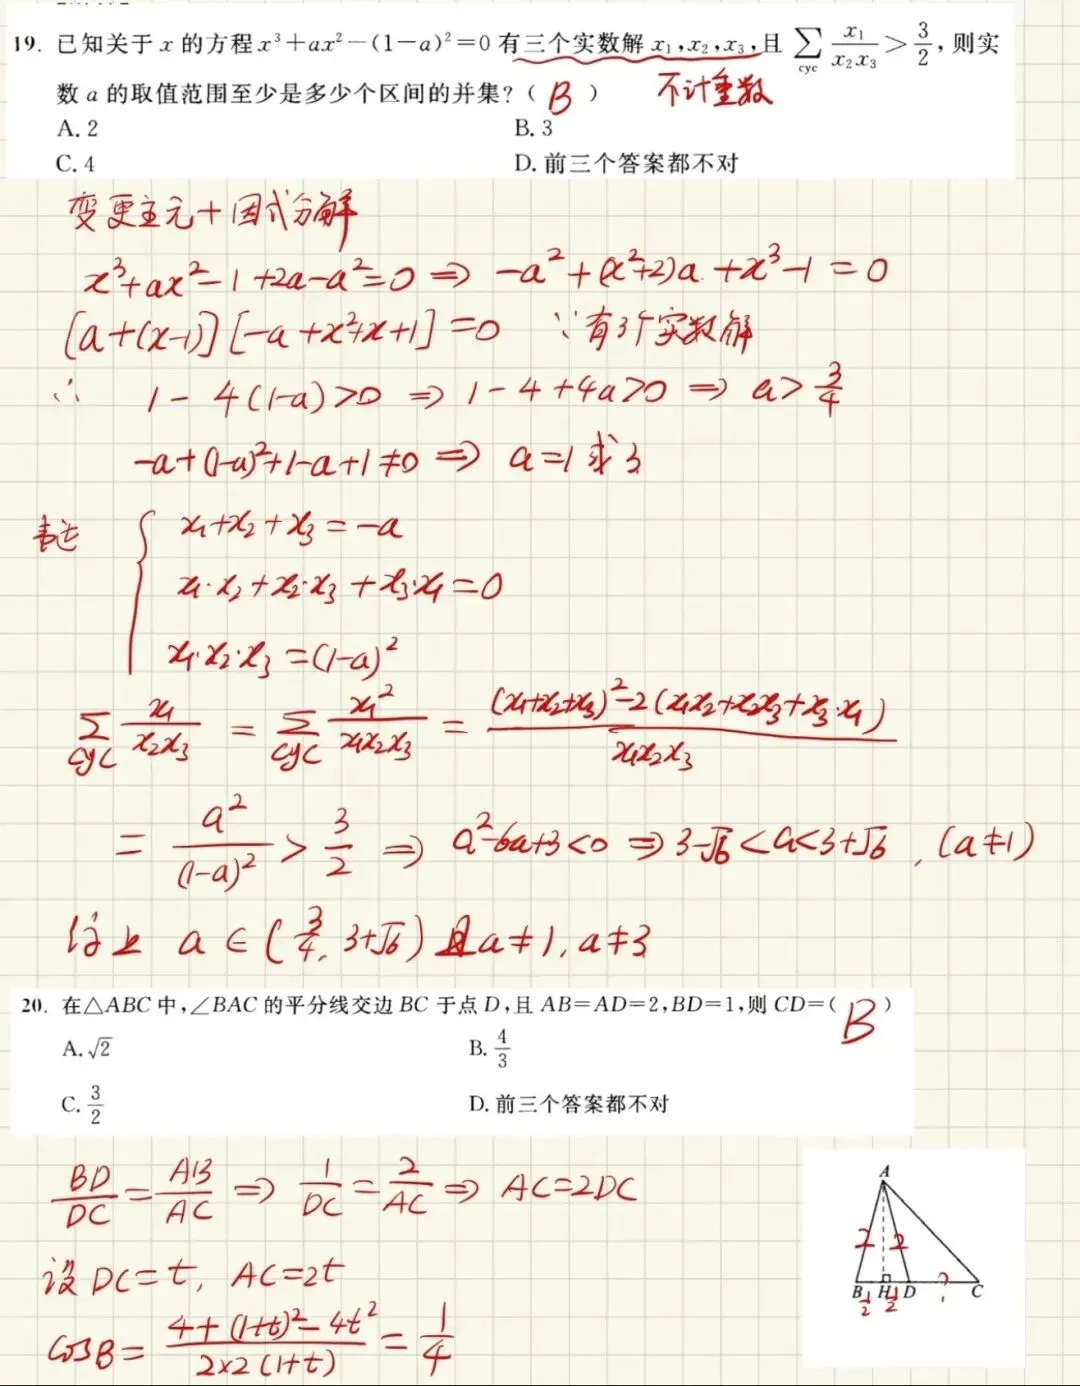 19. 已知关于 x 的方程 x³+ax²-(1-a)²=0 有三个实数解 x₁,x₂,x₃,且 ∑cyc x₁/(x₂x₃) > 3/2,则实
数 a 的取值范围至少是多少个区间的并集?( B ) 不计重数
A. 2 B. 3
C. 4 D. 前三个答案都不对
变更主元+因式分解
x³+ax²-1+2a-a²=0 ⇒ -a²+(x²+2)a+x³-1=0
[a+(x-1)][-a+x²+x+1]=0 ∵有3个实数解
∴ 1-4(1-a)>0 ⇒ 1-4+4a>0 ⇒ a>3/4
-a+(1-a)²+1-a+1≠0 ⇒ a=1或3
韦达 { x₁+x₂+x₃=-a
x₁·x₂+x₂·x₃+x₃·x₁=0
x₁·x₂·x₃=(1-a)²
∑cyc x₁/(x₂x₃) = ∑cyc x₁²/(x₁x₂x₃) = ((x₁+x₂+x₃)²-2(x₁x₂+x₂x₃+x₃·x₁))/(x₁x₂x₃)
= a²/(1-a)² > 3/2 ⇒ a²-6a+3<0 ⇒ 3-√6<a<3+√6,(a≠1)
综上 a∈(3/4,3+√6)且a≠1,a≠3
20. 在△ABC 中,∠BAC 的平分线交边 BC 于点 D,且 AB=AD=2,BD=1,则 CD=( B )
A. √2 B. 4/3
C. 3/2 D. 前三个答案都不对
BD/DC=AB/AC ⇒ 1/DC=2/AC ⇒ AC=2DC
设 DC=t, AC=2t
cosB= (4+(1+t)²-4t²)/(2×2(1+t)) = 1/4
A
2 2
B H D ? C
1/2 1/2